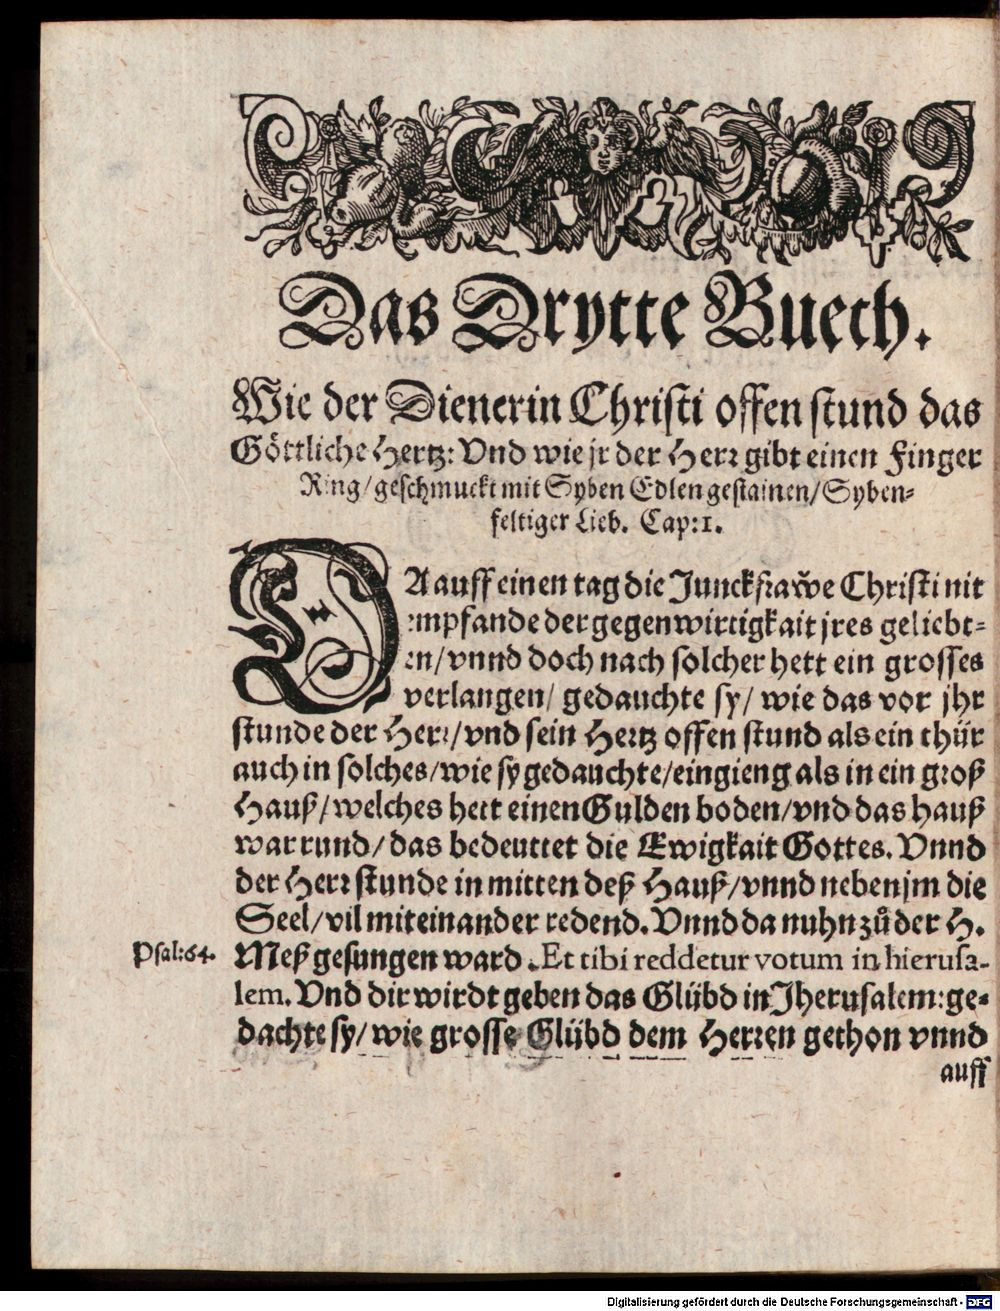 Das Drytte Buech.
Wie der Dienerin Christi offen stund das
Göttliche Hertz: Vnd wie jr der Herr gibt einen Finger
Ring/geschmuckt mit Syben Edlen gestainen/Syben-
feltiger Lieb. Cap:1.
DA auff einen tag die Junckfraw̃e Christi nit
empfande der gegenwirtigkait jres geliebt-
en/vnnd doch nach solcher hett ein grosses
verlangen/ gedauchte sy/ wie das vor jhr
stunde der Herr/vnd sein Hertz offen stund als ein thür
auch in solches/wie sy gedauchte/eingieng als in ein groß
Hauß/welches hett einen Gulden boden/vnd das hauß
war rund/das bedeuttet die Ewigkait Gottes. Vnnd
der Herr stunde in mitten deß Hauß/vnnd neben jm die
Seel/vil miteinander redend. Vnnd da nuhn zů der H.
Psal:64. Meß gesungen ward. Et tibi reddetur votum in hierusa-
lem. Vnd dir wirdt geben das Glübd in Jherusalem: ge-
dachte sy/ wie grosse Glübd dem Herren gethon vnnd
auff
Digitalisierung gefördert durch die Deutsche Forschungsgemeinschaft - DFG